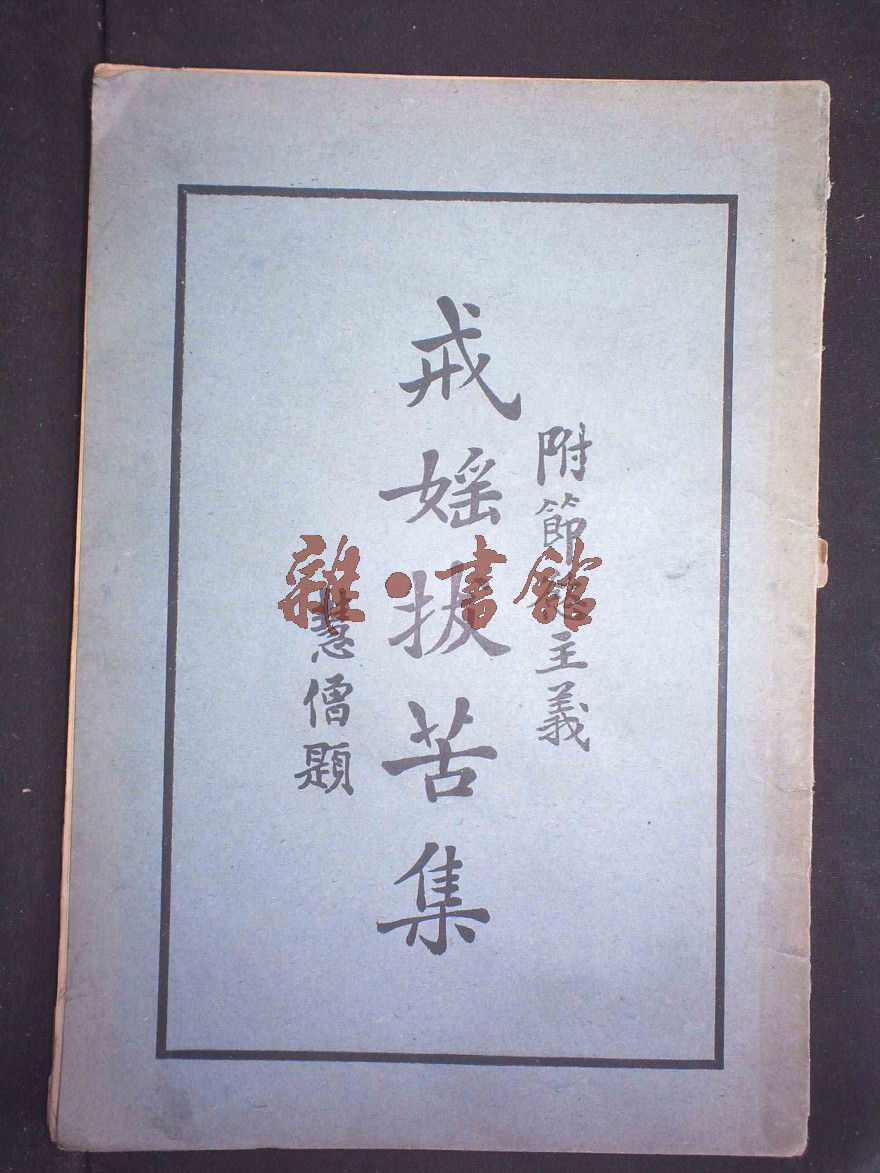 附節主義
戒媱拔苦集
慧僧題
雜•書館